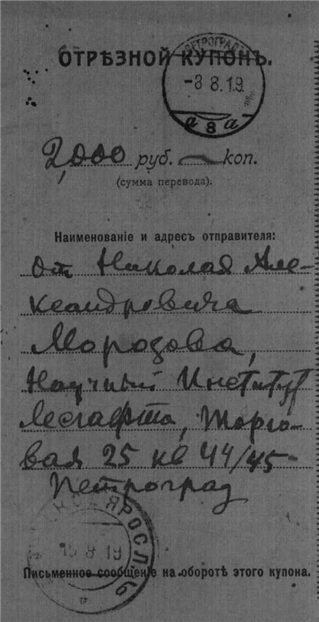 ПЕТРОГРАДЪ
ОТРѢЗНОЙ КУПОНЪ.
-8 8.19
а 8 а
2,000 руб. — коп.
(сумма перевода).
Наименованіе и адресъ отправителя:
От Николая Але-
ксандровича
Морозова,
Научный Институт
Лесгафта, Торго-
вая 25 кв 44/45
Петроград
ЯРОСЛ
8 19
Письменное сообщеніе на оборотѣ этого купона.